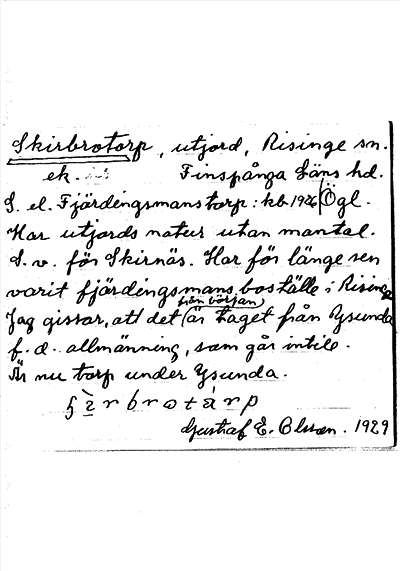 Skirbrotorp, utjord, Risinge sn.
ek. Finspånga läns hd.
S. el. Fjärdingsmanstorp: kb 1926 Ögl.
Har utjords natur utan mantal.
S. v. för Skirnäs. Har för länge sen
varit fjärdingsmansboställe i Risinge
Jag gissar, att det (från början) är taget från Ysunda
f. d. allmänning, som går intill.
Är nu torp under Ysunda.
Gustaf E. Olsson. 1929